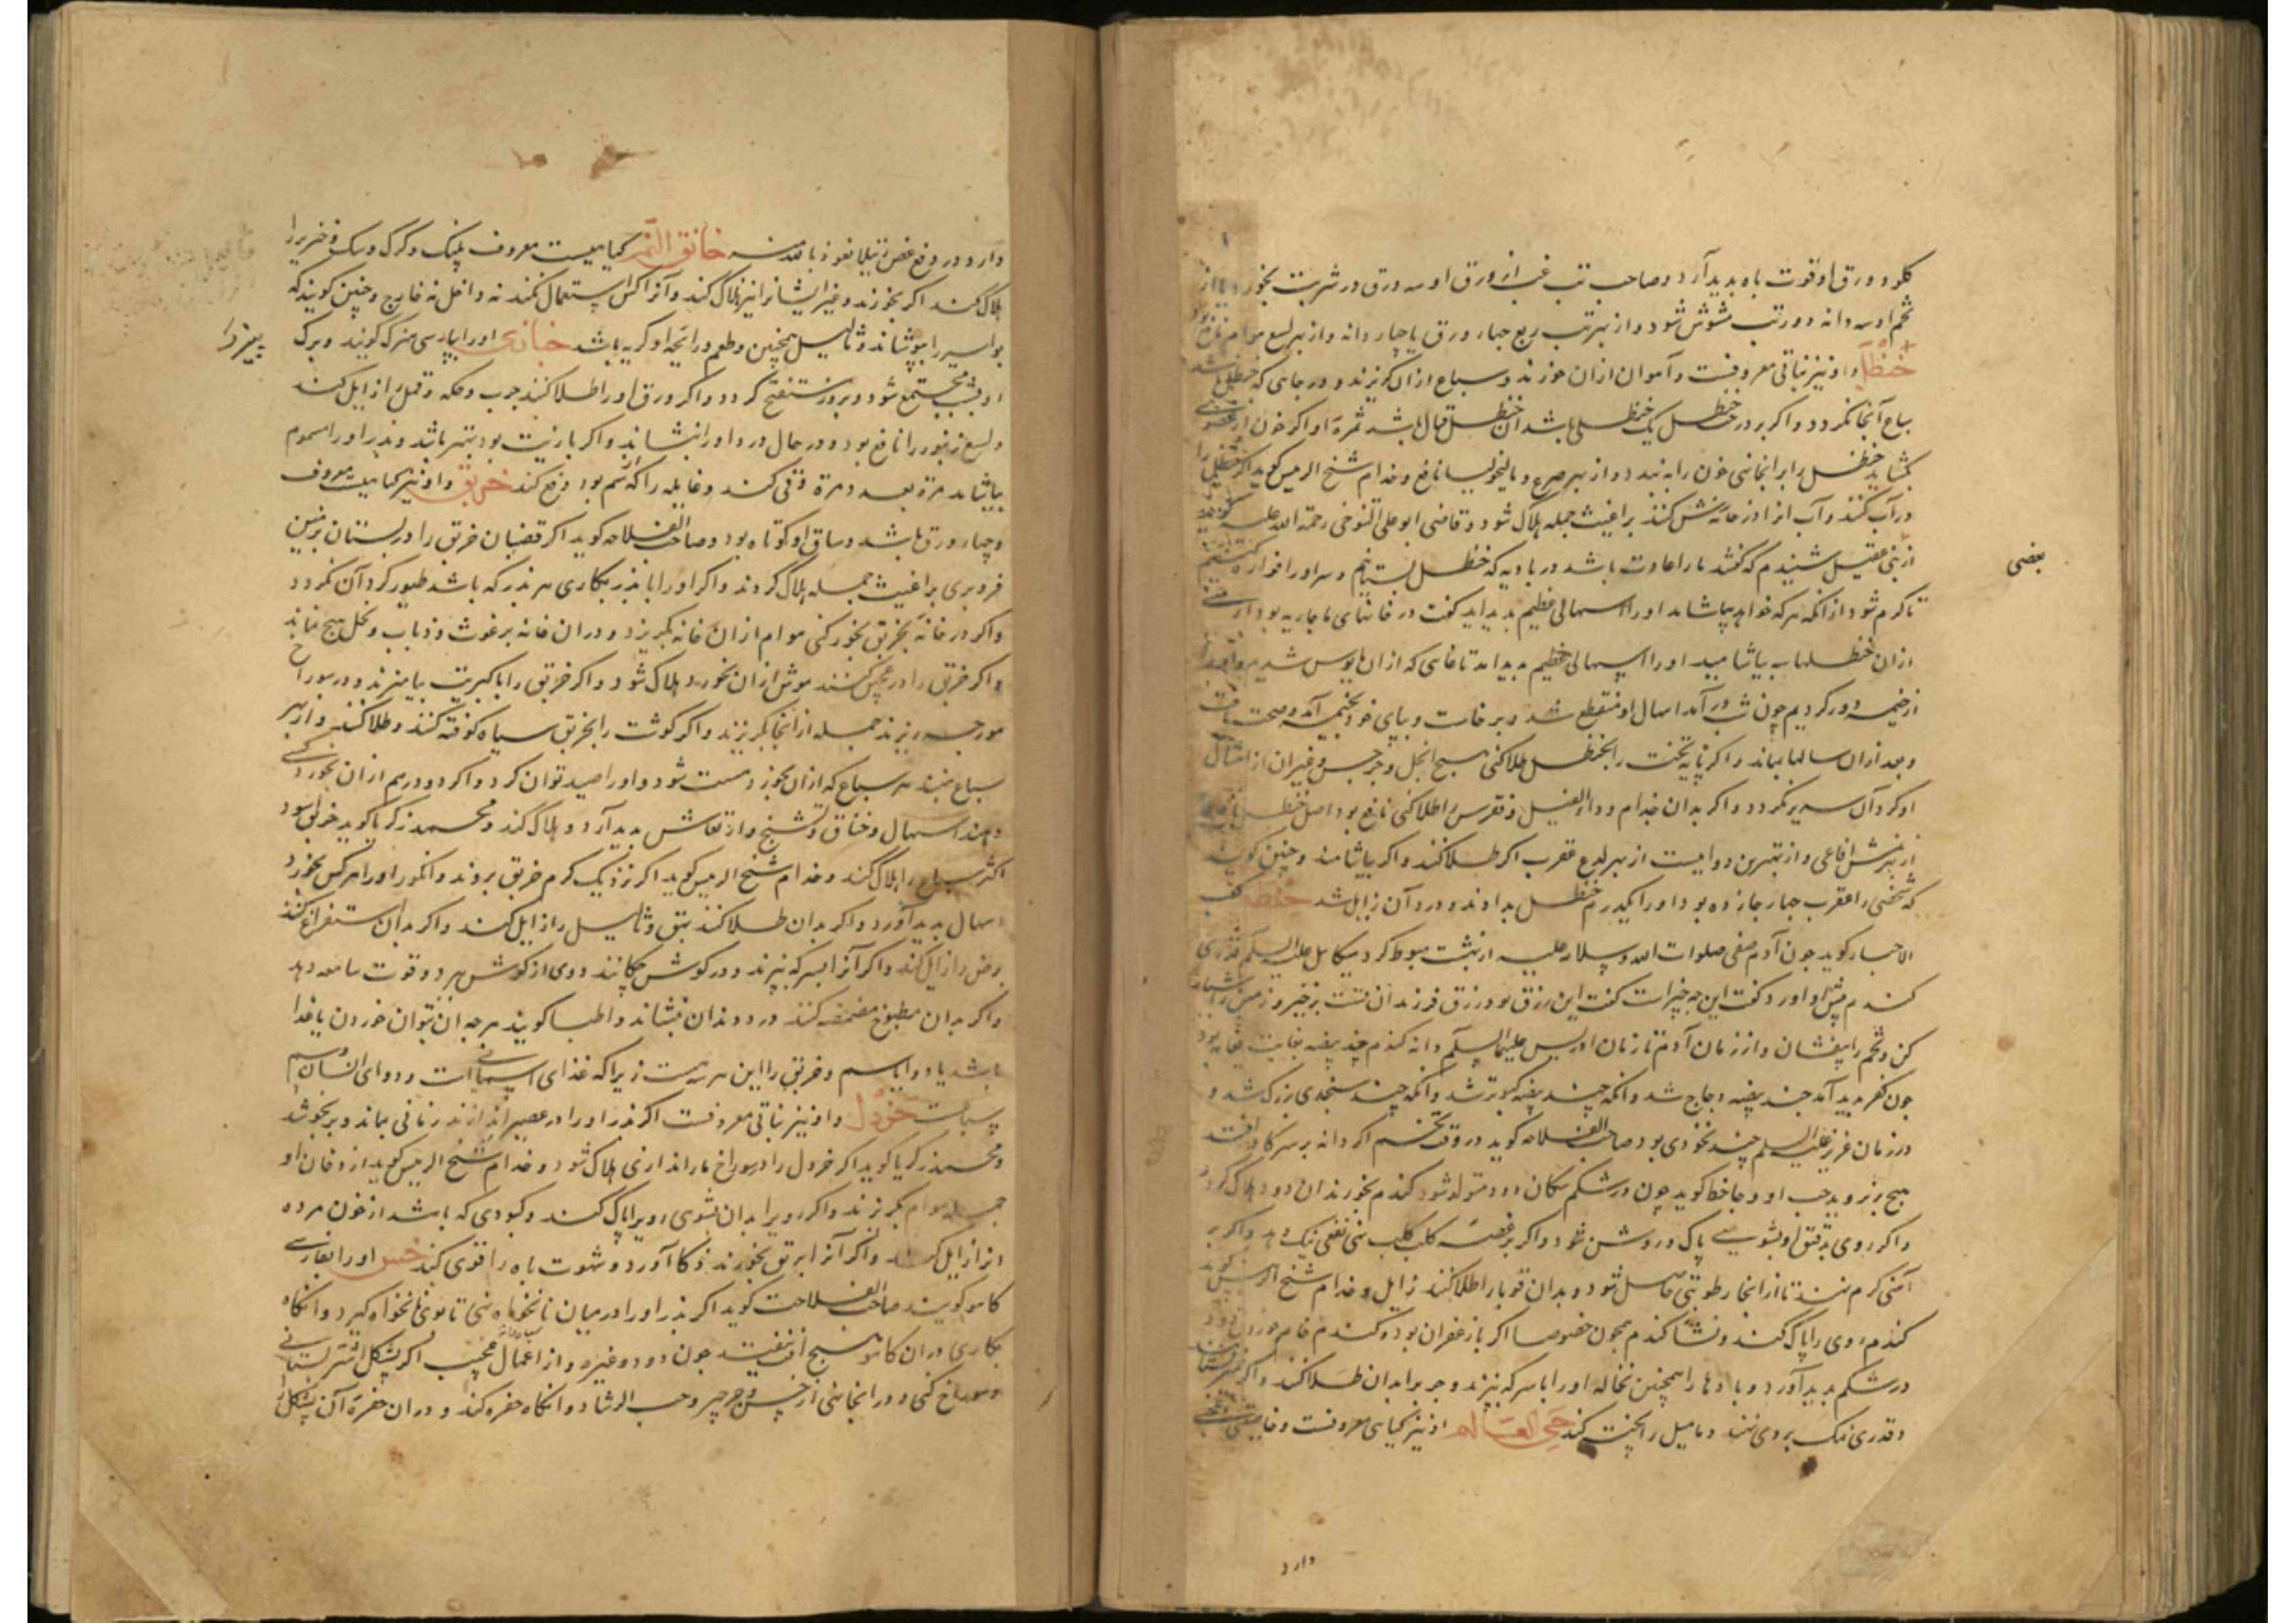 کلو و ورق او قوت باه بدید آرد و صاحب تب غب از ورق او سه ورق در شربت بخورد یا از
تخم او سه دانه دور تب مشوش شود و از بهر تب ربع چهار ورق یا چهار دانه و از بهر لسع هوام نافع بود
حنظل و او نیز نباتی معروفست و آهوان ازان خورند و سباع ازان گریزند و در جایی که حنظل باشد
سباع آنجا نگردد و اگر بر درخت حنظل یک حنظل باشد آن حنظل قتال باشد ثمرة او اگر خون از عضوی
بگشاید حنظل را بر آنجا نهی خون را به بندد و از بهر صرع و مالیخولیا نافع و خدام شیخ الرئیس گوید اگر حنظل را
در آب کنند و آب آنرا در خانه رش کنند براغیث جمله هلاک شود و قاضی ابو علی التنوخی رحمة الله علیه گوید
بعضی
از بنی عقیل شنیدم که گفتند ما را عادت باشد در بادیه که حنظل بستانیم و سر او را فراز کنیم
تا گرم شود ازانکه هر که خواهد بیاشامد او را اسهالی عظیم بدید آید گفت در خانهای ما جاریه بود
ازان حنظلها بیاشامید او را اسهالی عظیم بدید آمد تا غایتی که ازان مایوس شدیم و او را
از خیمه دور کردیم چون شب در آمد اسهال او منقطع شد و برخاست و بپای خود بخیمه آمد و صحت یافت
و بعد ازان سالها بماند و اگر پایه تخت را بحنظل طلا کنی هیچ انجل و جرجس و غیر آن از امثال
او گرد آن سریر نگردد و اگر بدان جذام و داء الفیل و نقرس را طلا کنی نافع بود اصل حنظل نافع بود
از بهر نهش افاعی و از بهترین دوا ایست از بهر لدغ عقرب اگر طلا کنند و اگر بیاشامند و چنین گویند
که شخصی را عقرب چهار جا زده بود او را یکدرم حنظل بدادند و درد آن زایل شد حنطه کعب
الاحبار گوید چون آدم صفی صلوات الله و سلامه علیه از بهشت هبوط کرد میکائیل علیه السلم قدری
کندم پیش او آورد و گفت این چه چیز است گفت این رزق تو و رزق فرزندان تست برخیز و زمین را شیار
کن و تخم را بیفشان و از زمان آدم تا زمان ادریس علیهما السلم دانه کندم چند بیضه نعامه بود
چون کفر بدید آمد چند بیضه دجاج شد وانکه چند بیضه کبوتر شد وانکه چند سنجدی بزرک شد و
در زمان عزیز علیه السلم چند نخودی بود صاحب الفلاحه گوید در وقت تخم اگر دانه بر سر کاو افتد
هیچ بر نروید جب او و جاحظ گوید چون در شکم سکان دود متولد شود کندم بخورند آن دود هلاک گردد
و اگر روی بدقیق او بشویی پاک و روشن شود و اگر بر عضه کلب کلب نهی نفعی نیک دهد و اگر بر
آهنی گرم نهند تا از آنجا رطوبتی حاصل شود و بدان قوبا را طلا کنند زایل و خدام شیخ الرئیس گوید
کندم روی را پاک کند و نشا کندم همچون خصوصا اگر با زعفران بود و کندم خام خوردن دود
در شکم بدید آورد و بادها را همچنین نخاله او را با سرکه بپزند و جرب را بدان طلا کنند و اگر خمیر بستانند
و قدری نمک بر وی نهند دمامیل را پخته کند حی العالم او نیز گیاهی معروفست و خاصیتی
دارد
دارد و در دفع غضب تیلا نعوذ بالله منه خانق النمر گیاهیست معروف پلنک و گرک و سک و خنزیر را
هلاک کند اگر بخورند و غیر ایشانرا نیز هلاک کند و آنرا کس استعمال نکند نه داخل نه خارج و چنین گویند که
بواسیر را بپوشاند و ثالیل همچنین و طعم و رائحه او کریه باشد خبازی او را بپارسی نیرک گویند و برک
او بشب مجتمع شود و بروز مستفتح گردد و اگر ورق او را طلا کنند جرب و حکه و قمل را زایل کند
و لسع زنبور را نافع بود و در حال درد او را بنشاند و اگر با زیت بود بهتر باشد و بذر او را مسموم
بیاشامد مرة بعد مرة و قی کند و غایله را که سم بود دفع کند خربق و او نیز گیاهیست معروف
و چهار ورق باشد و ساق او کوتاه بود و صاحب الفلاحه گوید اگر قضبان خربق را در بستان بزمین
فرو بری براغیث جمله هلاک گردند و اگر او را با بذر بکاری هر بذر که باشد طیور گرد آن نگردد
و اگر در خانه بخربق بخور کنی هوام ازان خانه بگریزد و دران خانه برغوث و ذباب و نحل هیچ نماند
و اگر خربق را در عجین کنند موش ازان بخورد و هلاک شود و اگر خربق را با کبریت بیامیزند و در سوراخ
مورچه ریزند جمله از آنجا بگریزند و اگر گوشت را بخربق سیاه کوفته کنند و طلا کنند و از بهر
سباع بنهند هر سباع که ازان بخورد مست شود و او را صید توان کرد و اگر دو درم ازان بخورد کسی
دهند اسهال و خناق و تشنج و ارتعاش بدید آرد و هلاک کند و محمد زکریا گوید خربق اسود
اکثر سباع را هلاک کند و خدام شیخ الرئیس گوید اگر نزدیک کرم خربق بروید و انگور او را هر کس بخورد
اسهال بدید آورد و اگر بدان طلا کنند بهق و ثالیل را زایل کند و اگر بدان استفراغ کنند
مرض را زایل کند و اگر آنرا بسرکه بپزند و در گوش چکانند دوی از گوش ببرد و قوت سامعه دهد
و اگر بدان مطبوخ مضمضه کنند درد دندان بنشاند و اطبا گویند هر چه ان بتوان خوردن یا غذا
باشد یا دوا یا سم و خربق را این هر سه هست زیرا که غذای اسمانی است و دوای انسان و سم
سباعست خردل و او نیز نباتی معروفست اگر بذر او را در عصیر اندازند زمانی بماند و بر نجوشد
و محمد زکریا گوید اگر خردل را در سوراخ مار اندازی هلاک شود و خدام شیخ الرئیس گوید از دخان او
جمله هوام بگریزند و اگر رو را بدان بشوی روی را پاک کند و کبودی که باشد از خون مرده
انرا زایل کند و اگر آنرا بر ریق بخورند ذکا آورد و شهوت باه را قوی کند خس او را بفارسی
کاهو گویند صاحب الفلاحت گوید اگر بذر او را در میان نانخواه نهی تا بوی نانخواه گیرد وانکاه
بکاری دران کاهو هیچ آفت نیفتد چون دود و غیره و از اعمال عجیب اگر پشکل اشتر بستانی
و سوراخ کنی و در انجا نهی از خس و جرجیر و حب الرشاد و انکاه حفره کند و دران حفره آن پشکل را